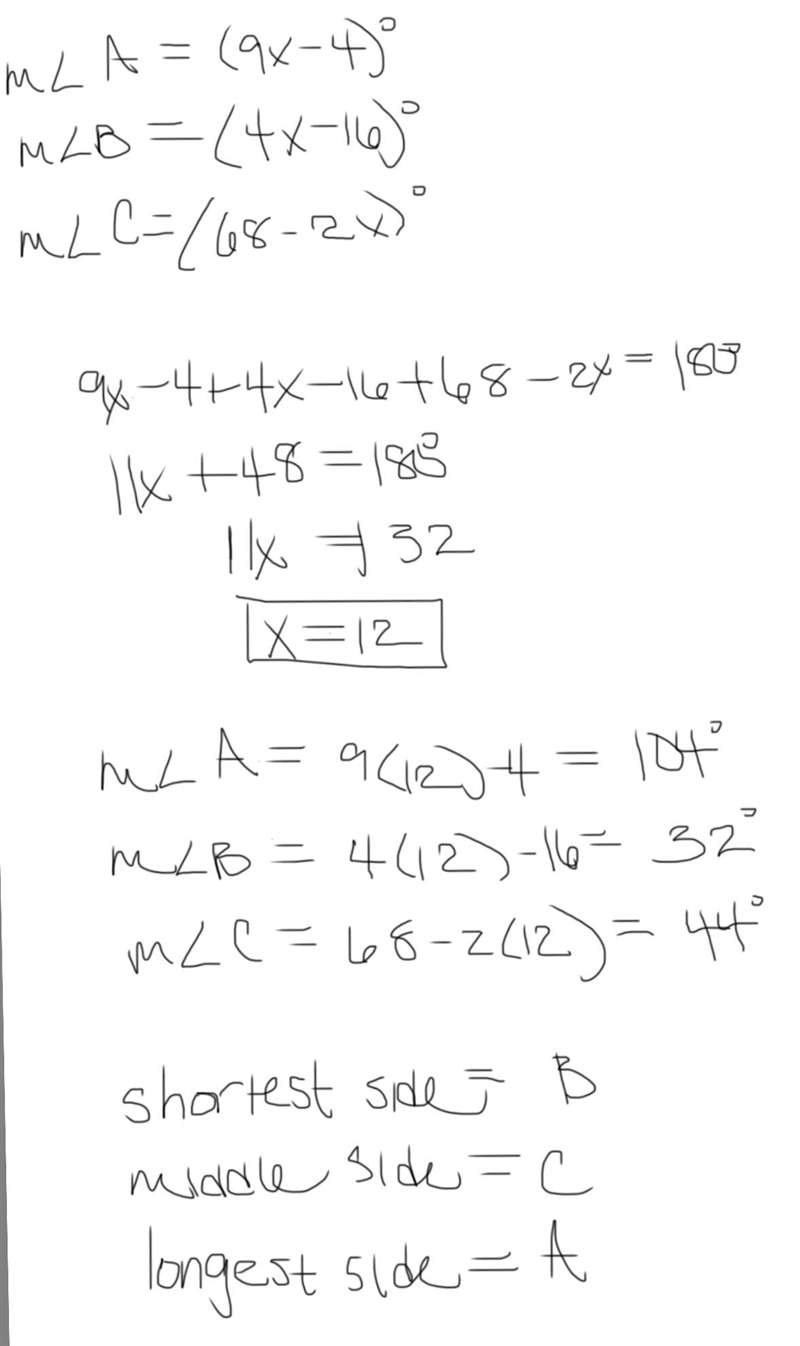 m∠A = (9x-4)°
m∠B = (4x-16)°
m∠C = (68-2x)°
9x-4+4x-16+68-2x = 180
11x + 48 = 180
11x = 132
x = 12
m∠A = 9(12)-4 = 104°
m∠B = 4(12)-16 = 32°
m∠C = 68-2(12) = 44°
shortest side = B
middle side = C
longest side = A